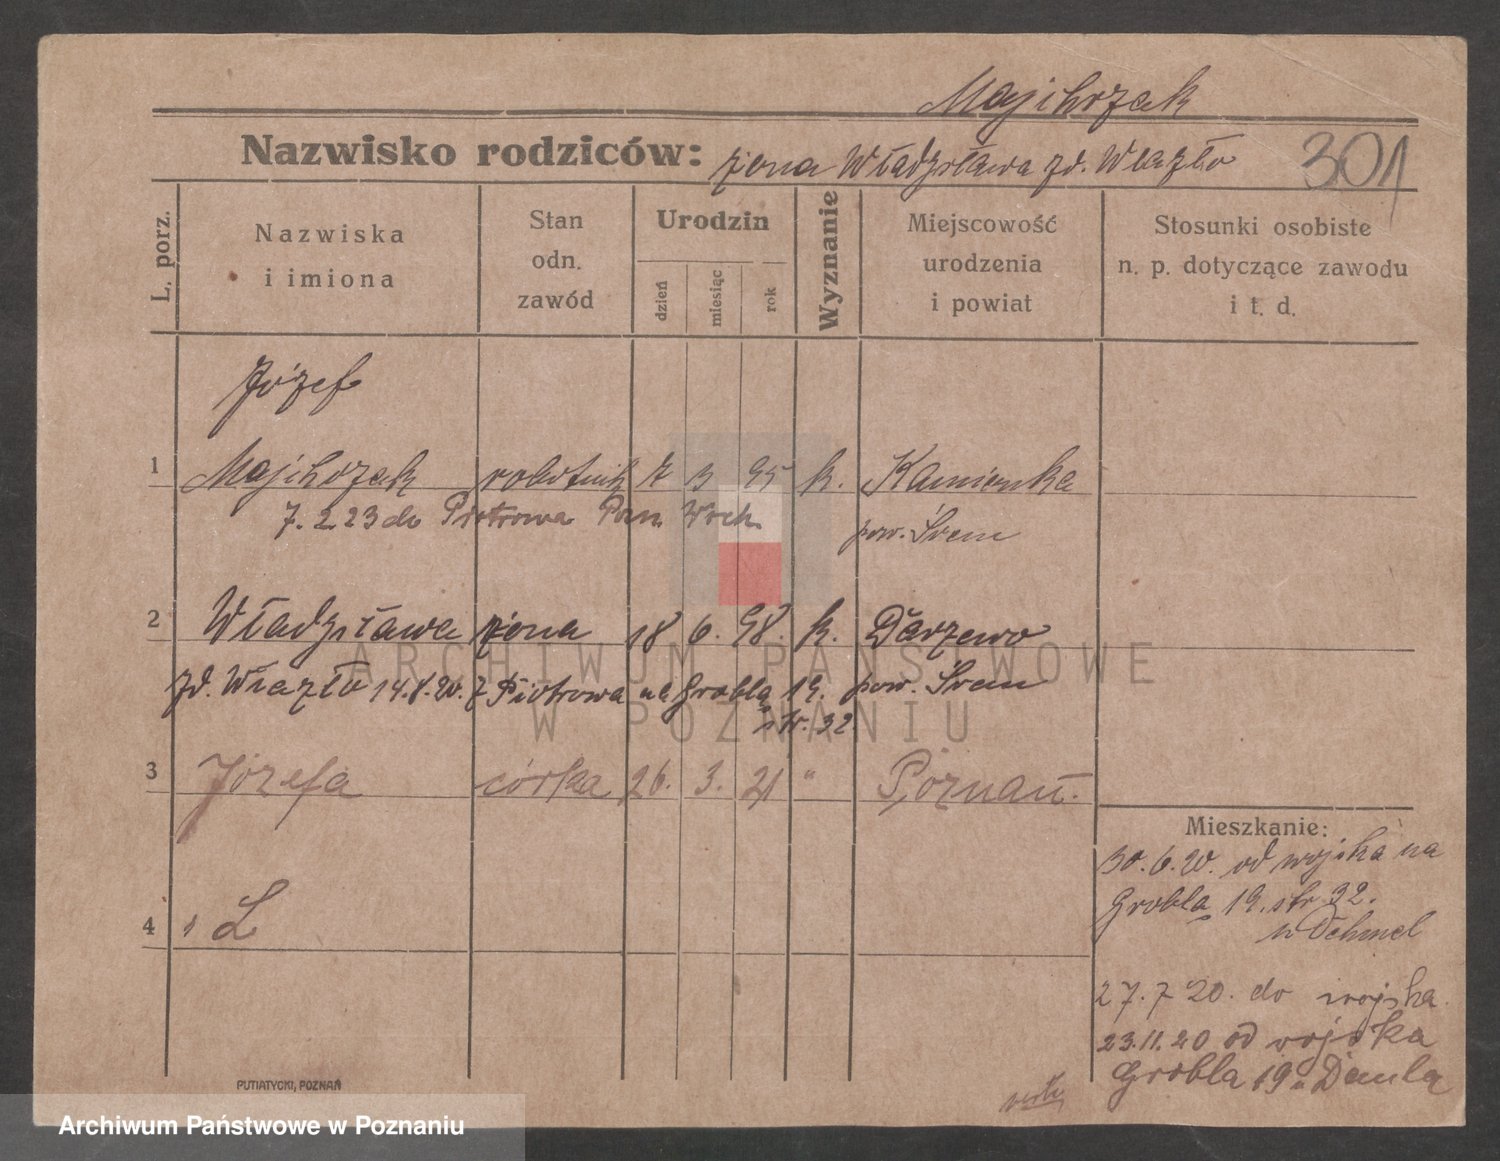 Majchrzak
Nazwisko rodziców: żona Władysława zd. Wlazło 301
L. porz.
Nazwiska i imiona
Stan odn. zawód
Urodzin
dzień
miesiąc
rok
Wyznanie
Miejscowość urodzenia i powiat
Stosunki osobiste n. p. dotyczące zawodu i t. d.
Józef
1 Majchrzak robotnik 7 3 95 k. Kamionka
7. 2. 23 do Piotrowa Pozn. Wsch. pow. Śrem
2 Władysława żona 18 6. 98. k. Darzewo
zd. Wlazło 14.8.20. z Piotrowa na Grobla 19. pow. Śrem
str. 32
3 Józefa córka 26. 3. 21 " Poznań.
Mieszkanie:
30.6.20. od wojska na
Grobla 19. str. 32.
u Dehmel
4 L
27.7 20. do wojska.
23.11.20 od wojska
Grobla 19 u
PUTIATYCKI, POZNAŃ
ARCHIWUM PAŃSTWOWE
W POZNANIU
Archiwum Państwowe w Poznaniu